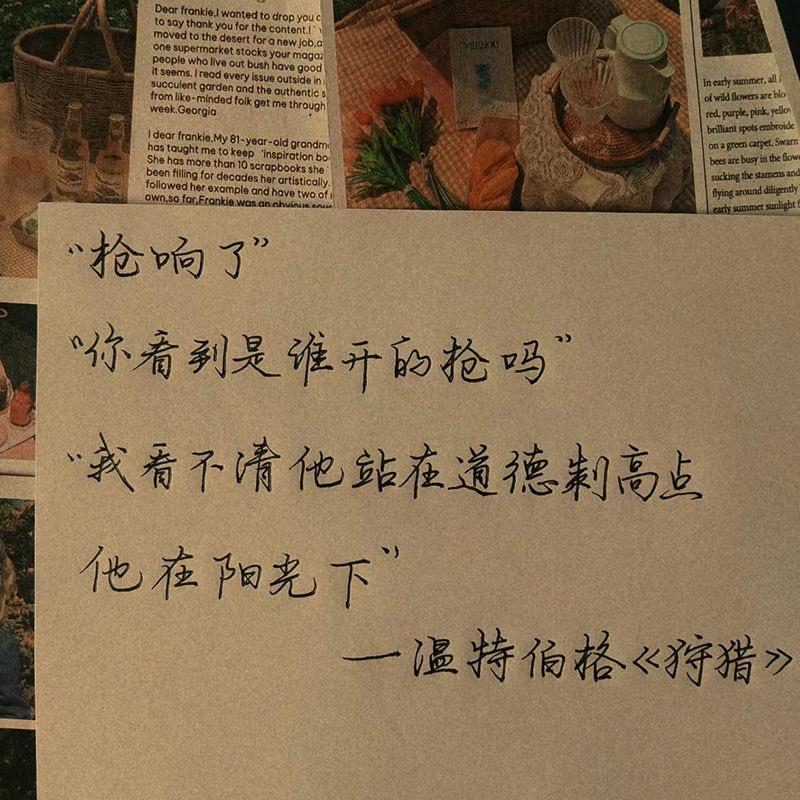 Dear frankie,I wanted to drop you
to say thank you for the content.I
moved to the desert for a new job,a
one supermarket stocks your maga
people who live out bush have good
it seems. I read every issue outside in
succulent garden and the authentic s
from like-minded folk get me through
week.Georgia
I dear frankie,My 81-year-old grandm
has taught me to keep 'inspiration bo
She has more than 10 scrapbooks she
been filling for decades her artistically.
followed her example and have two of
own,so far.Frankie was an obvious
In early summer, all
of wild flowers are blo
red, purple, pink, yello
brilliant spots embroide
on a green carpet. Swarm
bees are busy in the flow
sucking the stamens and
flying around diligently
early summer sunlight f
“枪响了”
“你看到是谁开的枪吗”
“我看不清他站在道德制高点
他在阳光下”
—温特伯格《狩猎》